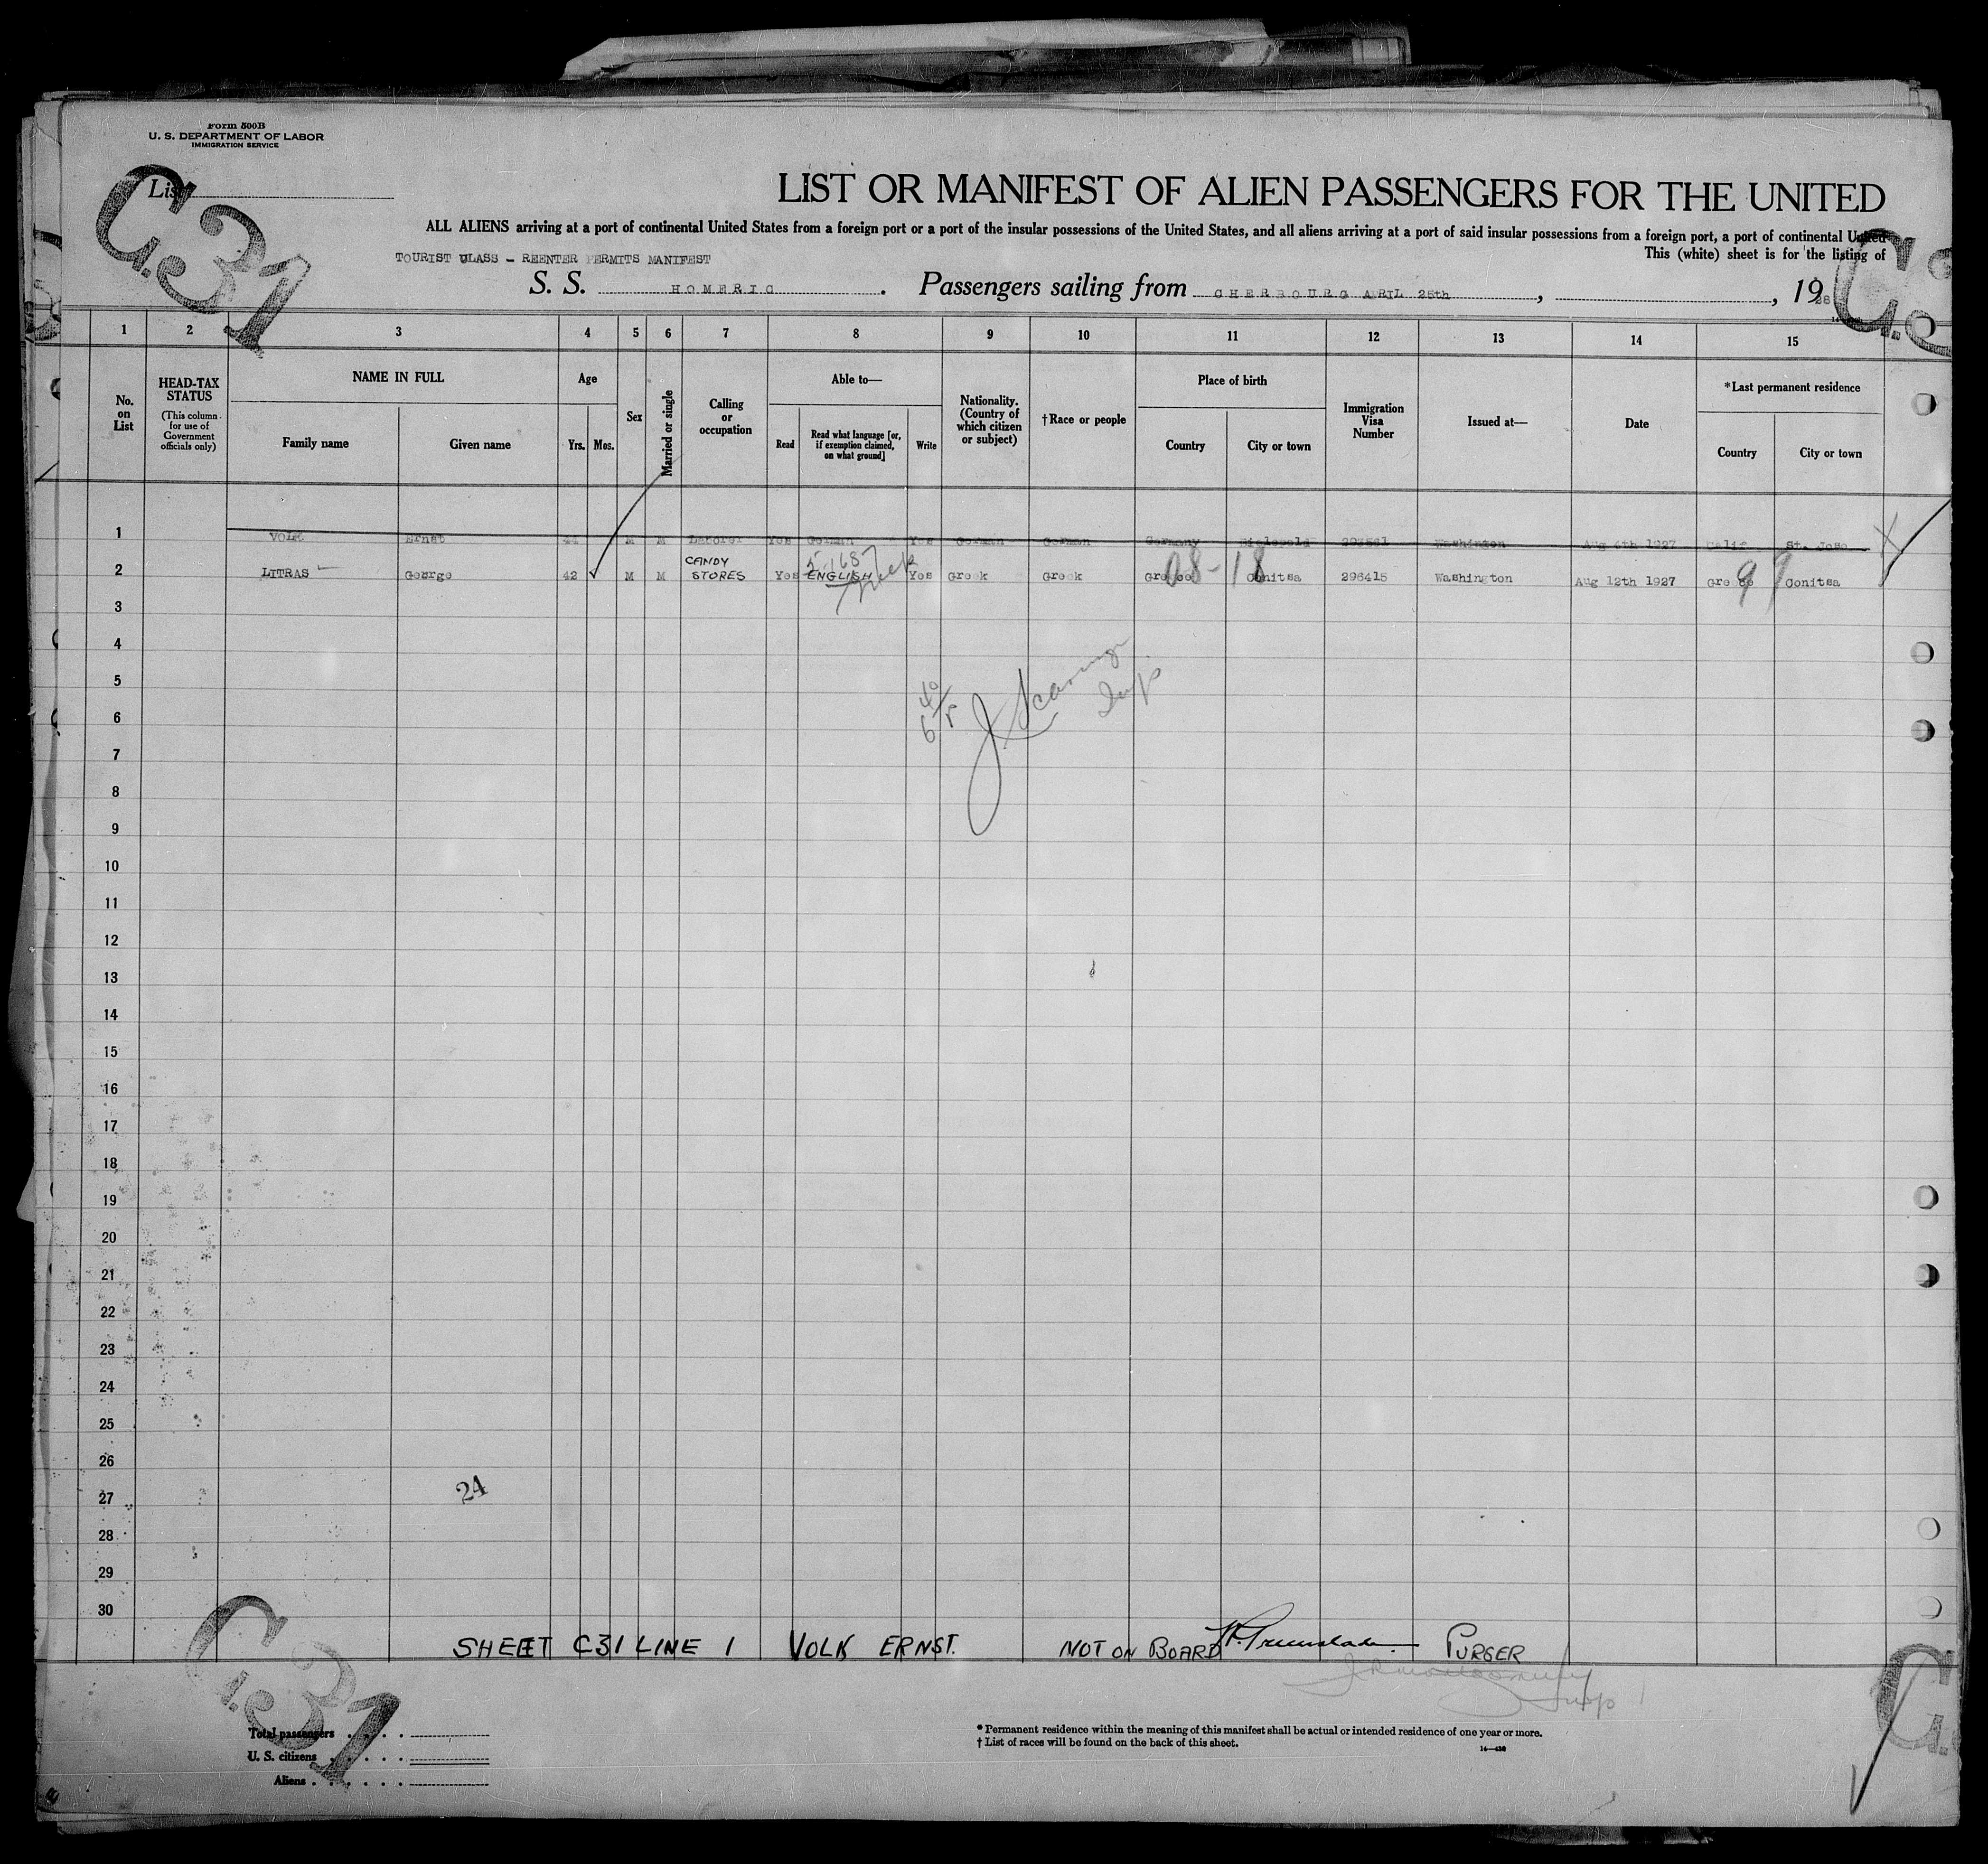 Form 500B
U. S. DEPARTMENT OF LABOR
IMMIGRATION SERVICE
List
C.31
LIST OR MANIFEST OF ALIEN PASSENGERS FOR THE UNITED
ALL ALIENS arriving at a port of continental United States from a foreign port or a port of the insular possessions of the United States, and all aliens arriving at a port of said insular possessions from a foreign port, a port of continental United
This (white) sheet is for the listing of
TOURIST CLASS - REENTER PERMITS MANIFEST
S. S. HOMERIC. Passengers sailing from CHERBOURG APRIL 25th, , 1928
1 2 3 4 5 6 7 8 9 10 11 12 13 14 15
No. on List
HEAD-TAX STATUS
(This column for use of Government officials only)
NAME IN FULL
Family name Given name
Age
Yrs. Mos.
Sex
Married or single
Calling or occupation
Able to—
Read
Read what language [or, if exemption claimed, on what ground]
Write
Nationality. (Country of which citizen or subject)
†Race or people
Place of birth
Country City or town
Immigration Visa Number
Issued at—
Date
*Last permanent residence
Country City or town
1 VOLK Ernst 44 M M Laborer Yes German Yes German German Germany Washington Aug 6th 1927 Calif St. Jose
2 LITRAS George 42 M M CANDY STORES Yes ENGLISH Greek Yes Greek Greek Greece Conitsa 296415 Washington Aug 12th 1927 Greece Conitsa
08-18
99
3
4
5
6
7
8
9
10
11
12
13
14
15
16
17
18
19
20
21
22
23
24
25
26
27
24
28
29
30
SHEET C31 LINE 1 VOLK ERNST. NOT ON BOARD PURSER
Insp
C.31
Total passengers
U. S. citizens
Aliens
* Permanent residence within the meaning of this manifest shall be actual or intended residence of one year or more.
† List of races will be found on the back of this sheet.
14—430